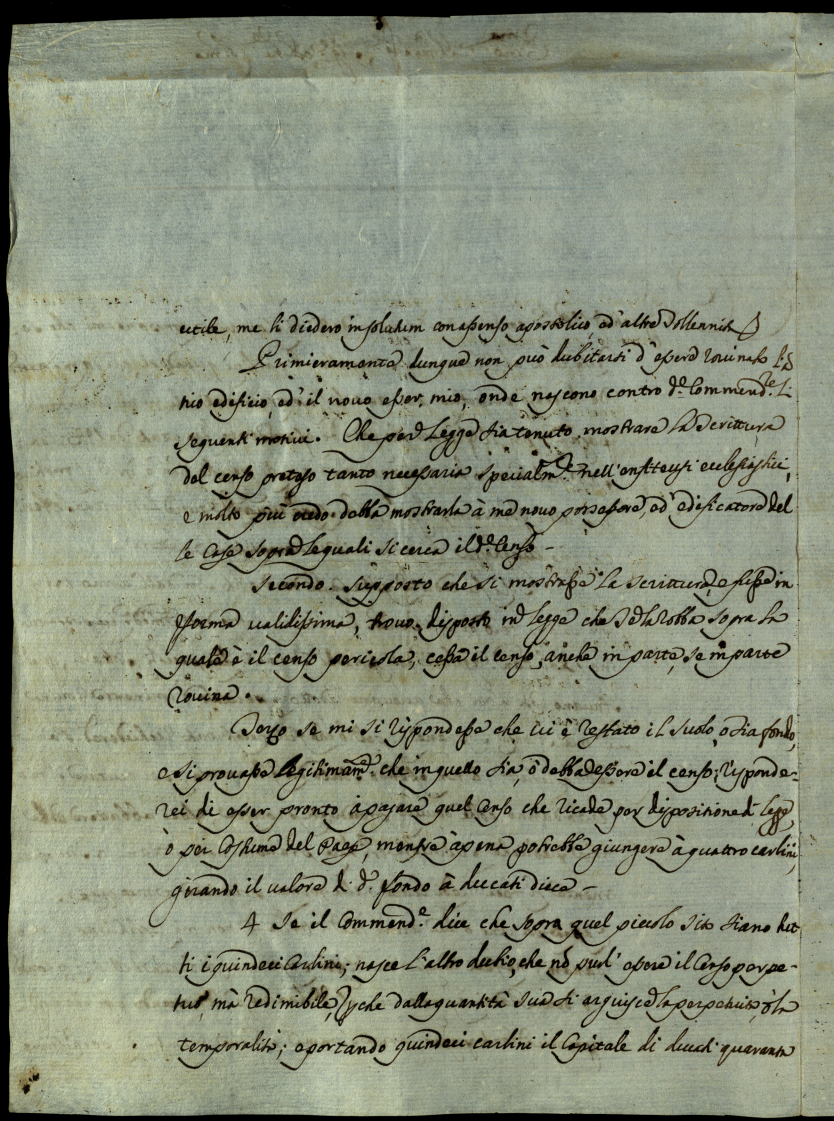 utile, me li diedero insolutum con assenso apostolico, ed' altre sollennità
Primieramente dunque non può dubitarsi d'essere rovinato l'
tico edificio, ed' il novo esser mio, onde nascono contro d.º Commend.re li
seguenti motivi. Che per Legge sia tenuto mostrare la Scrittura
del censo preteso tanto necessaria specialm.te nell'enfiteusi ecclesiastici,
e molto più credo debba mostrarla à me novo possessore, ed' edificatore del
le Case sopra le quali si cerca il d.º Censo -
Secondo. Supposto che si mostrasse la Scrittura, e fusse in
forma validissima, trovo disposto in legge che se la robba sopra la
quale è il censo pericola, cessa il censo, anche in parte, se in parte
rovina.
Terzo se mi si rispondesse che ivi è restato il suolo, o sia fondo,
e si provasse legitimam.te che in quello sia, ò debba essere il censo; risponde-
rei di esser pronto à pagare quel Censo che ricade per dispositione di legge,
ò per Costume del Paese, mentre àpena potrebbe giungere à quattro carlini,
girando il valore di d.º fondo à ducati diece -
4 Se il Commend.re dice che sopra quel piccolo sito siano tut
ti i quindeci Carlini; nasce l'altro dubio, che nõ puol' essere il Censo perpe-
tuo, mà redimibile, che dalla quantità sua si arguisce la perpetuità, ò la
temporalità; e portando quindeci carlini il Capitale di ducati quaranta